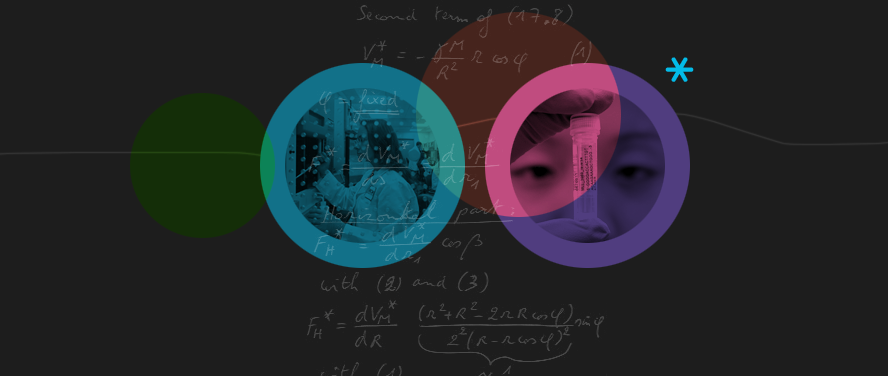 Second term of (17.8)
V_M^* = - γM/R² r cos φ (1)
φ = fixed
F^* = dV_M^*/ds = dV_M^*/dr₁
Horizontal part:
F_H^* = dV_M^*/dr₁ cos β
with (2) and (3)
F_H^* = dV_M^*/dR (r²+R²-2rRcosφ)/2²(R-rcosφ)² sin φ
with (1) ≈ 1